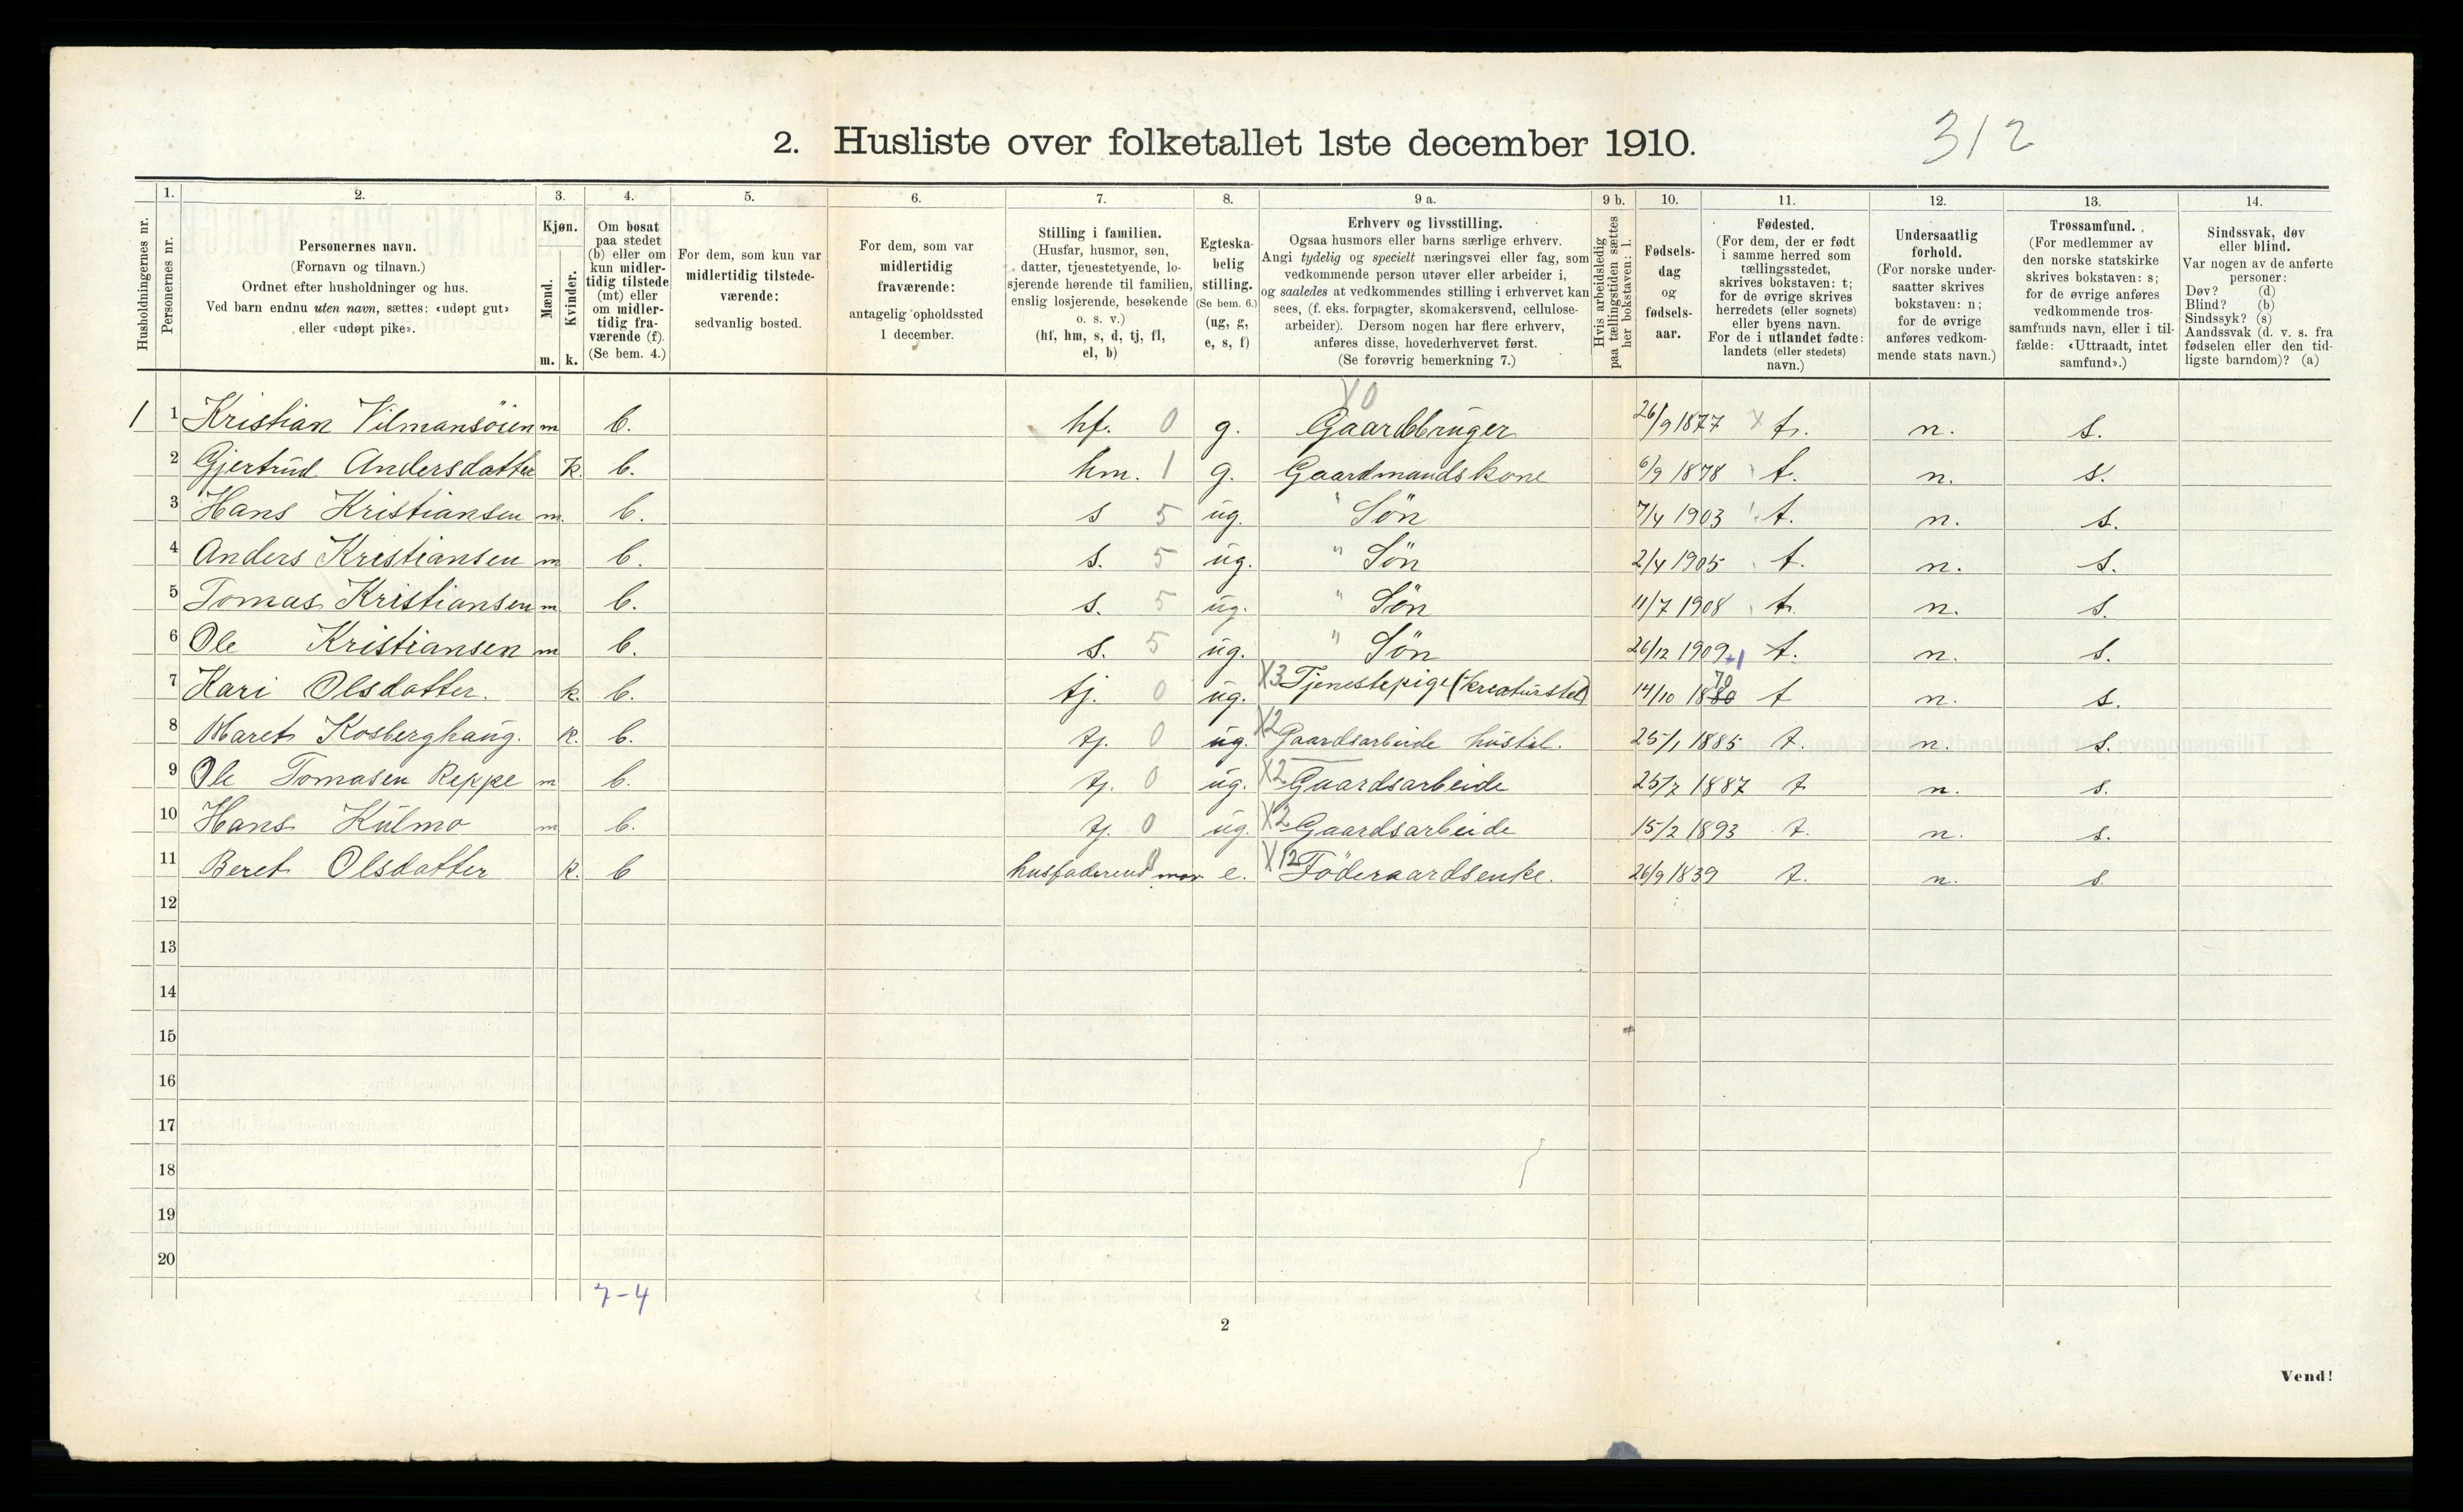 312
2. Husliste over folketallet 1ste december 1910.
Husholdningernes nr.
1.
Personernes nr.
2.
Personernes navn.
(Fornavn og tilnavn.)
Ordnet efter husholdninger og hus.
Ved barn endnu uten navn, sættes: «udøpt gut»
eller «udøpt pike».
3.
Kjøn.
Mænd.
Kvinder.
m. k.
4.
Om bosat
paa stedet
(b) eller om
kun midler-
tidig tilstede
(mt) eller
om midler-
tidig fra-
værende (f).
(Se bem. 4.)
5.
For dem, som kun var
midlertidig tilstede-
værende:
sedvanlig bosted.
6.
For dem, som var
midlertidig
fraværende:
antagelig opholdssted
1 december.
7.
Stilling i familien.
(Husfar, husmor, søn,
datter, tjenestetyende, lo-
sjerende hørende til familien,
enslig losjerende, besøkende
o. s. v.)
(hf, hm, s, d, tj, fl,
el, b)
8.
Egteska-
belig
stilling.
(Se bem. 6.)
(ug, g,
e, s, f)
9 a.
Erhverv og livsstilling.
Ogsaa husmors eller barns særlige erhverv.
Angi tydelig og specielt næringsvei eller fag, som
vedkommende person utøver eller arbeider i,
og saaledes at vedkommendes stilling i erhvervet kan
sees, (f. eks. forpagter, skomakersvend, cellulose-
arbeider). Dersom nogen har flere erhverv,
anføres disse, hovederhvervet først.
(Se forøvrig bemerkning 7.)
9 b.
Hvis arbeidsledig
paa tællingstiden sættes
her bokstaven: l.
10.
Fødsels-
dag
og
fødsels-
aar.
11.
Fødested.
(For dem, der er født
i samme herred som
tællingsstedet,
skrives bokstaven: t;
for de øvrige skrives
herredets (eller sognets)
eller byens navn.
For de i utlandet fødte:
landets (eller stedets)
navn.)
12.
Undersaatlig
forhold.
(For norske under-
saatter skrives
bokstaven: n;
for de øvrige
anføres vedkom-
mende stats navn.)
13.
Trossamfund.
(For medlemmer av
den norske statskirke
skrives bokstaven: s;
for de øvrige anføres
vedkommende tros-
samfunds navn, eller i til-
fælde: «Uttraadt, intet
samfund».)
14.
Sindssvak, døv
eller blind.
Var nogen av de anførte
personer:
Døv? (d)
Blind? (b)
Sindssyk? (s)
Aandssvak (d. v. s. fra
fødselen eller den tid-
ligste barndom)? (a)
X0
1 1 Kristian Vilmansöien m b. hf. 0 g. Gaardbruger 26/9 1877 t. n. s.
2 Gjertrud Andersdatter k. b. hm. 1 g. Gaardmandskone 6/9 1878 t. n. s.
3 Hans Kristiansen m. b. s 5 ug. " Sön 7/4 1903 t. n. s.
4 Anders Kristiansen m b. s. 5 ug. " Sön 2/4 1905 t. n. s.
5 Tomas Kristiansen m b. s. 5 ug. " Sön 11/7 1908 t. n. s.
6 Ole Kristiansen m b. s. 5 ug. " Sön 26/12 1909 +1 t. n. s.
7 Kari Olsdatter. k. b. tj. 0 ug. X3 Tjenestepige (kreaturstel) 14/10 1880 70 t n. s.
8 Maret Kosberghaug. k. b. tj. 0 ug. X2 Gaardsarbeide hustel. 25/1 1885 t. n. s.
9 Ole Tomasen Reppe m b. tj. 0 ug. X2 Gaardsarbeide 25/7 1887 t n. s.
10 Hans Kulmo m b. tj. 0 ug. X2 Gaardsarbeide 15/2 1893 t. n. s.
11 Beret Olsdatter k. b husfaderens mor e. X12 Föderaardsenke. 26/9 1839 t. n. s.
12
13
14
15
16
17
18
19
20
7-4
2
Vend!